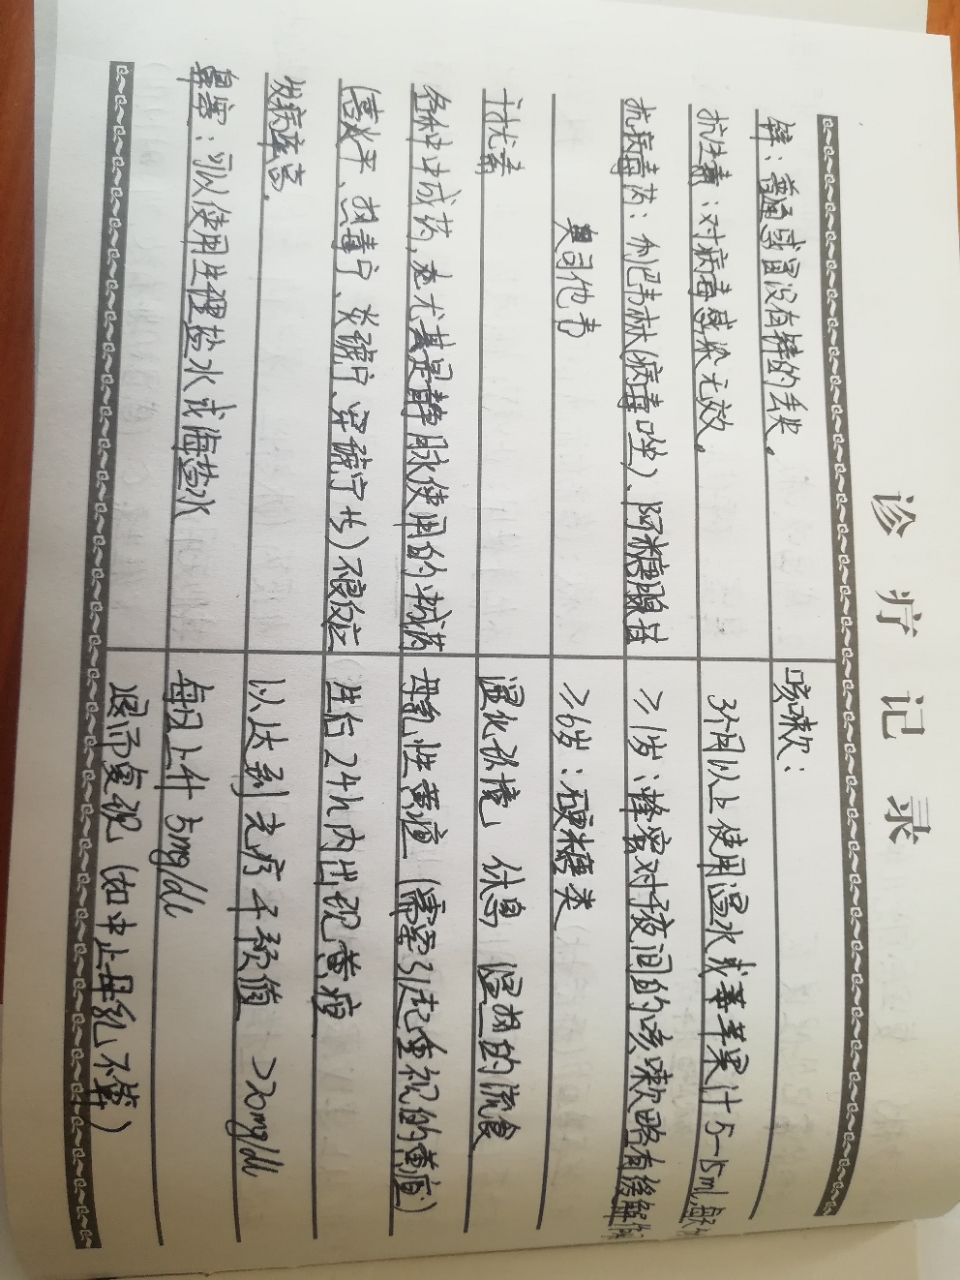 诊疗记录
锌：普通感冒没有锌的丢失。
抗生素：对病毒感染无效。
抗病毒药：利巴韦林(病毒唑)、阿糖腺苷
奥司他韦
干扰素
各种中成药，尤其是静脉使用的中成药
(喜炎平、热毒宁、炎琥宁、穿琥宁等)不良反应
发病率高。
鼻塞：可以使用生理盐水或海盐水
咳嗽：
3个月以上使用温水或苹苹果汁5-15ml
≥1岁：蜂蜜对于夜间的咳嗽略有缓解
≥6岁：硬糖类
湿化环境 休息 温热的流食
母乳性黄疸 (需要引起重视的黄疸)
生后24h内出现黄疸
以达到光疗干预值 >20mg/dl
每日上升5mg/dl
退而复现 (如中止母乳不算)